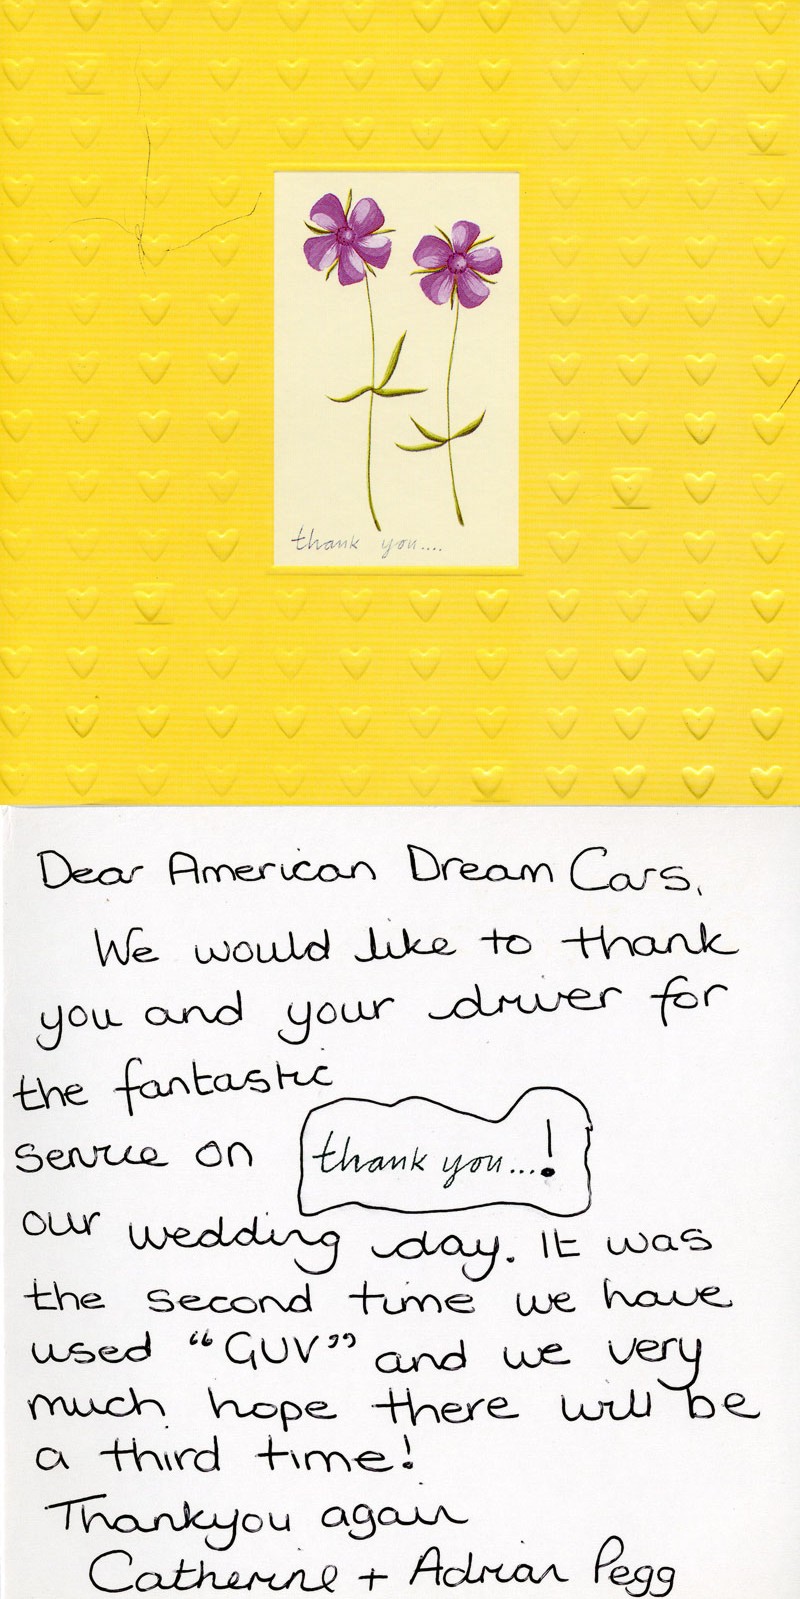 thank you....
Dear American Dream Cars,
We would like to thank
you and your driver for
the fantastic
service on
thank you...!
our wedding day. It was
the second time we have
used "GUV" and we very
much hope there will be
a third time!
Thankyou again
Catherine + Adrian Pegg